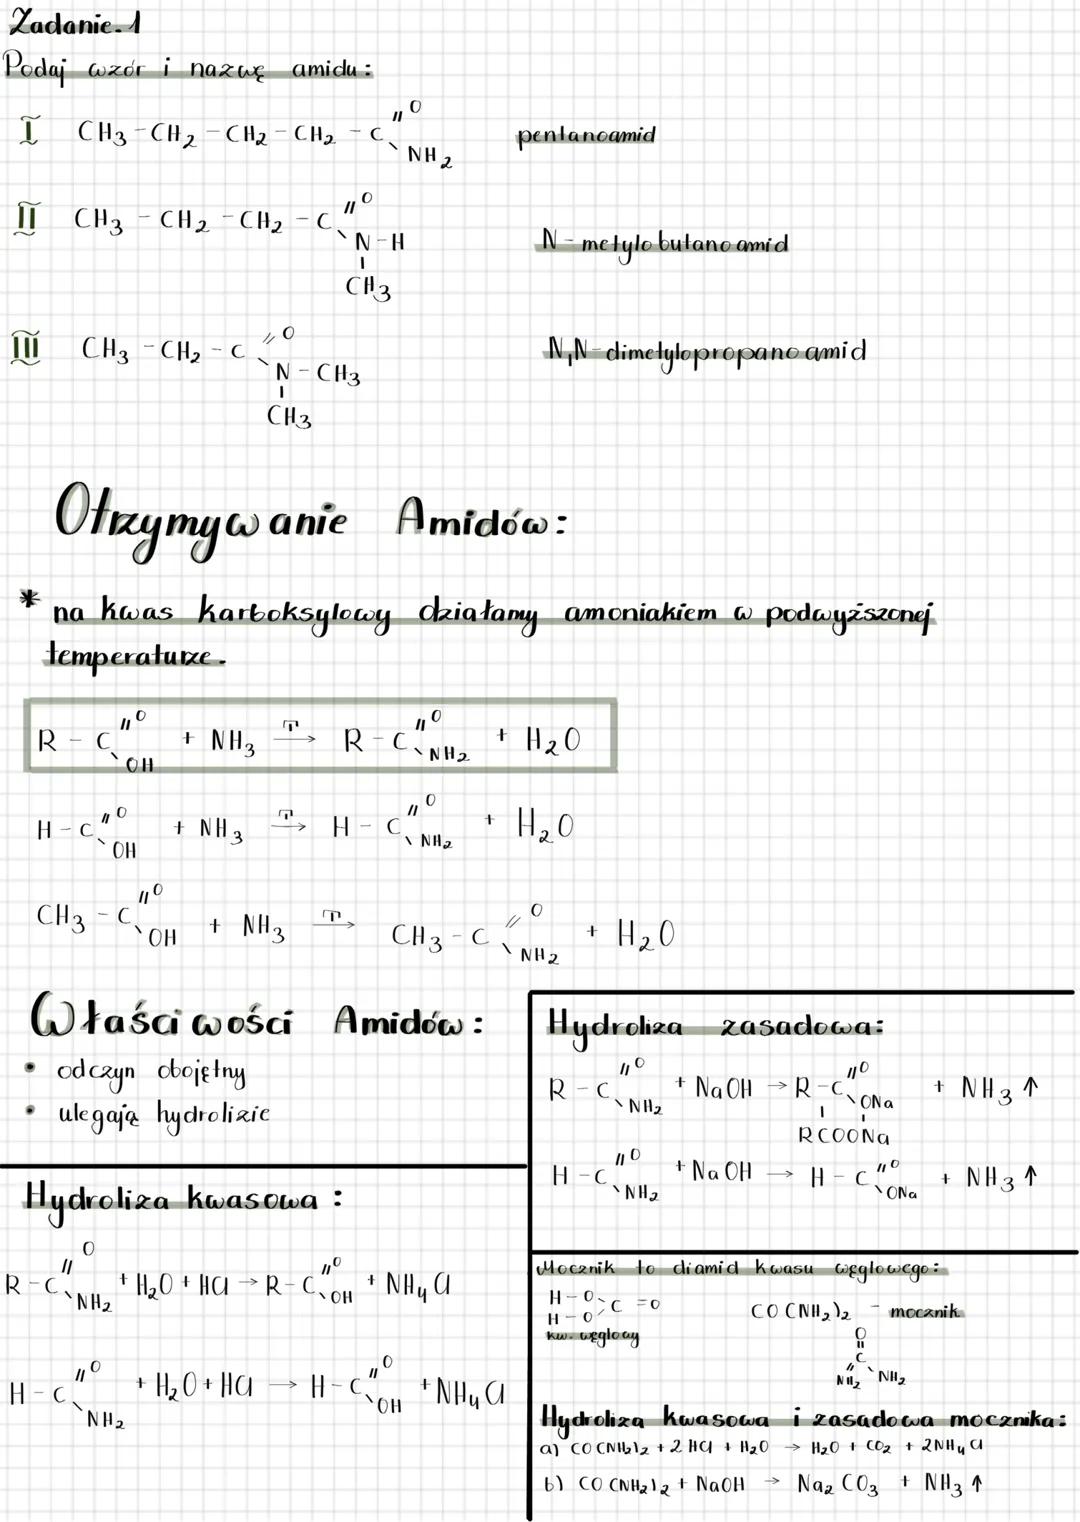 Zadanie.1
Podaj wzór i nazwę amidu:
I CH3 - CH2 - CH2 - CH2 - C
=O
NH2
pentanoamid
II CH3 - CH2 - CH2 - C
=O
N - H
CH3
N - metylobutanoamid
III CH3 - CH2 - C
=O
N - CH3
CH3
N,N-dimetylopropanoamid
Otrzymywanie Amidów:
* na kwas karboksylowy działamy amoniakiem w podwyższonej
temperaturze.
R - C =O OH + NH3 T→ R - C =O NH2 + H2O
H - C =O OH + NH3 T→ H - C =O NH2 + H2O
CH3 - C =O OH + NH3 T→ CH3 - C =O NH2 + H2O
Właściwości Amidów:
• odczyn obojętny
• ulegają hydrolizie
Hydroliza kwasowa:
R - C =O NH2 + H2O + HCl → R - C =O OH + NH4Cl
H - C =O NH2 + H2O + HCl → H - C =O OH + NH4Cl
Hydroliza zasadowa:
R - C =O NH2 + NaOH → R - C =O ONa + NH3 ↑
RCOONa
H - C =O NH2 + NaOH → H - C =O ONa + NH3 ↑
Mocznik to diamid kwasu węglowego:
H - O
H - O
C =O
kw. węglowy
CO(NH2)2 - mocznik
O
C
NH2 NH2
Hydroliza kwasowa i zasadowa mocznika:
a) CO(NH2)2 + 2HCl + H2O → H2O + CO2 + 2NH4Cl
b) CO(NH2)2 + NaOH → Na2CO3 + NH3 ↑